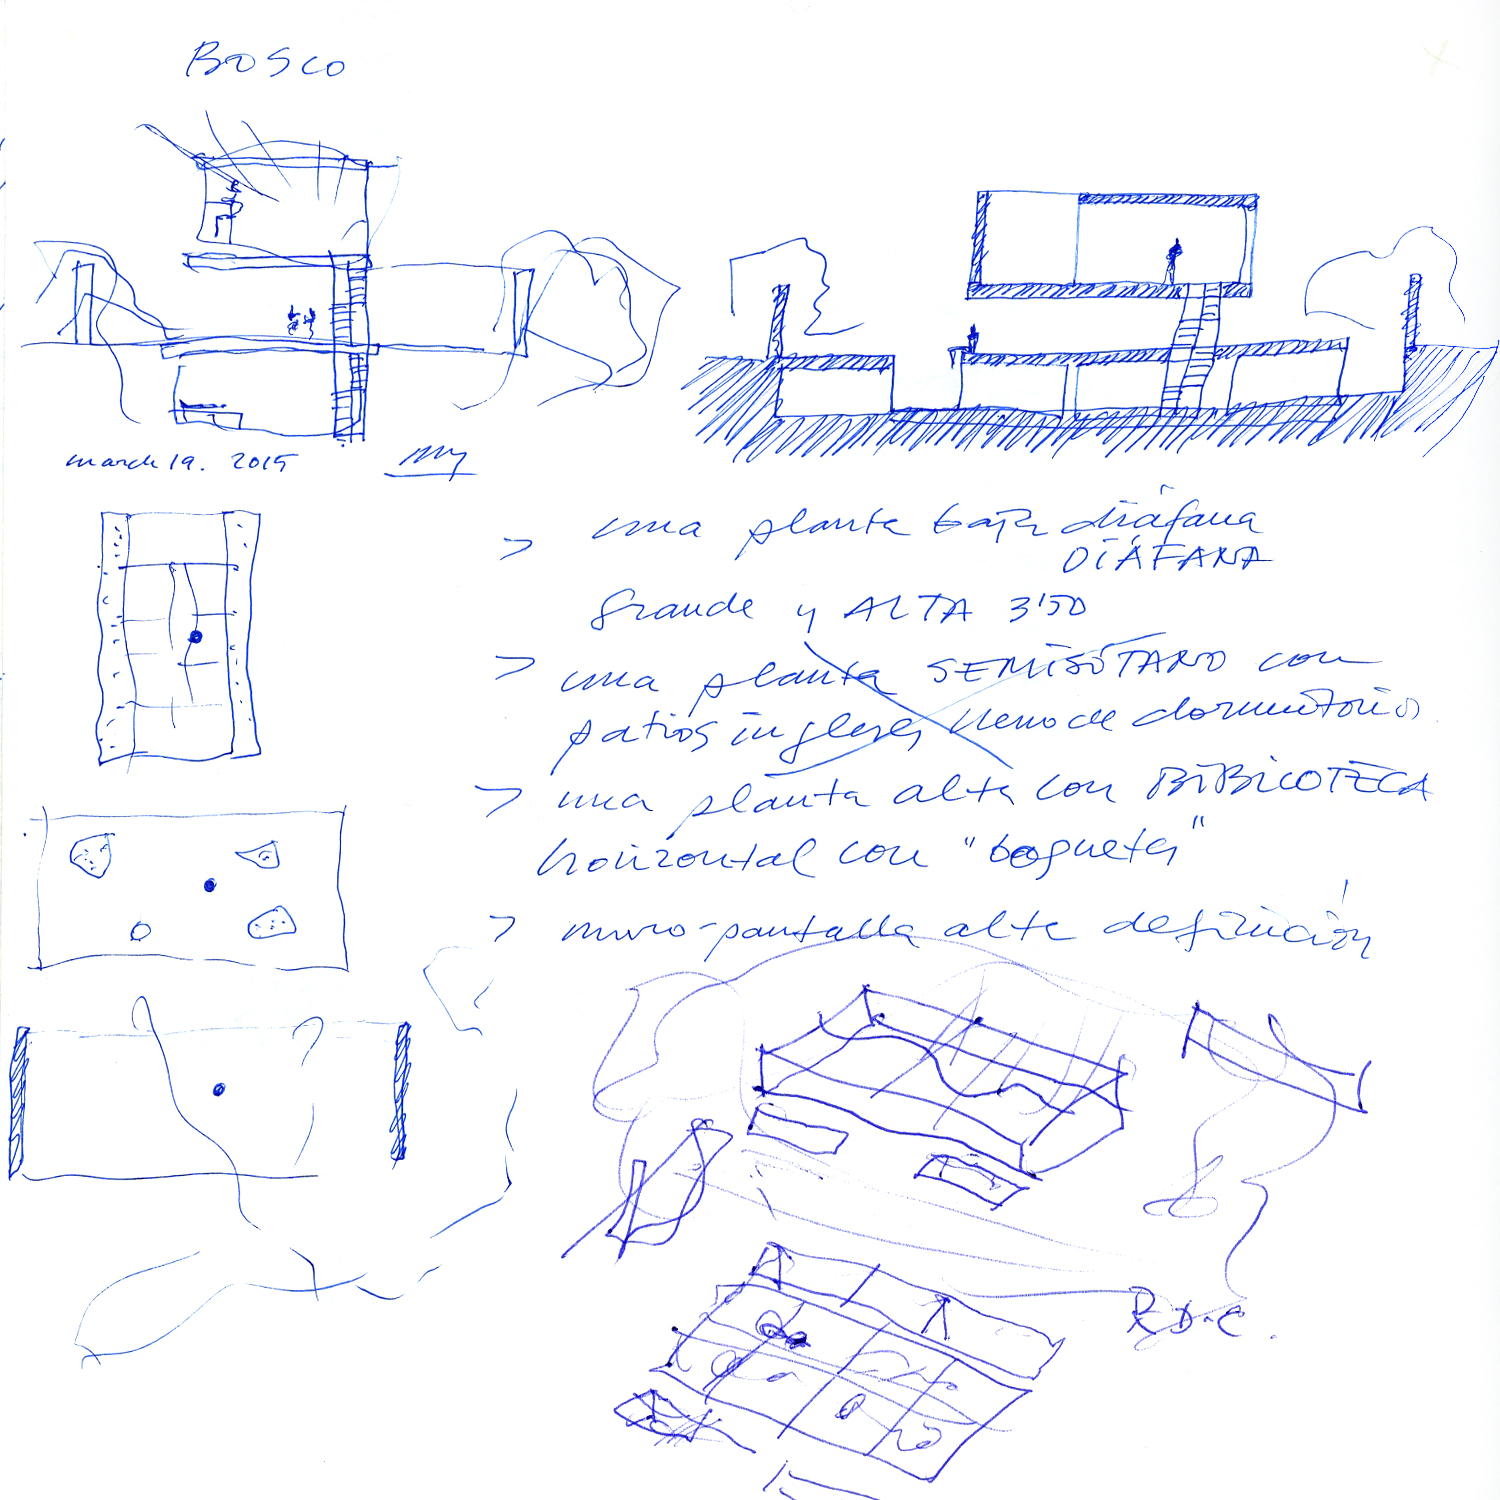 BOSCO
march 19. 2015
> una planta baja diáfana
DIÁFANA
grande y ALTA 3'50
> una planta SEMISÓTANO con
patios ingleses lleno de dormitorios
> una planta alta con BIBLIOTECA
horizontal con "boquetes"
> muro-pantalla alta definición
R.D.C.